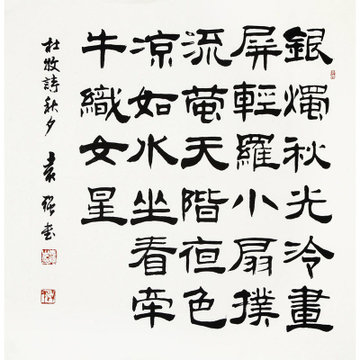 銀燭秋光冷畫
屏輕羅小扇撲
流螢天階夜色
凉如水坐看牽
牛織女星
杜牧詩秋夕 袁强書